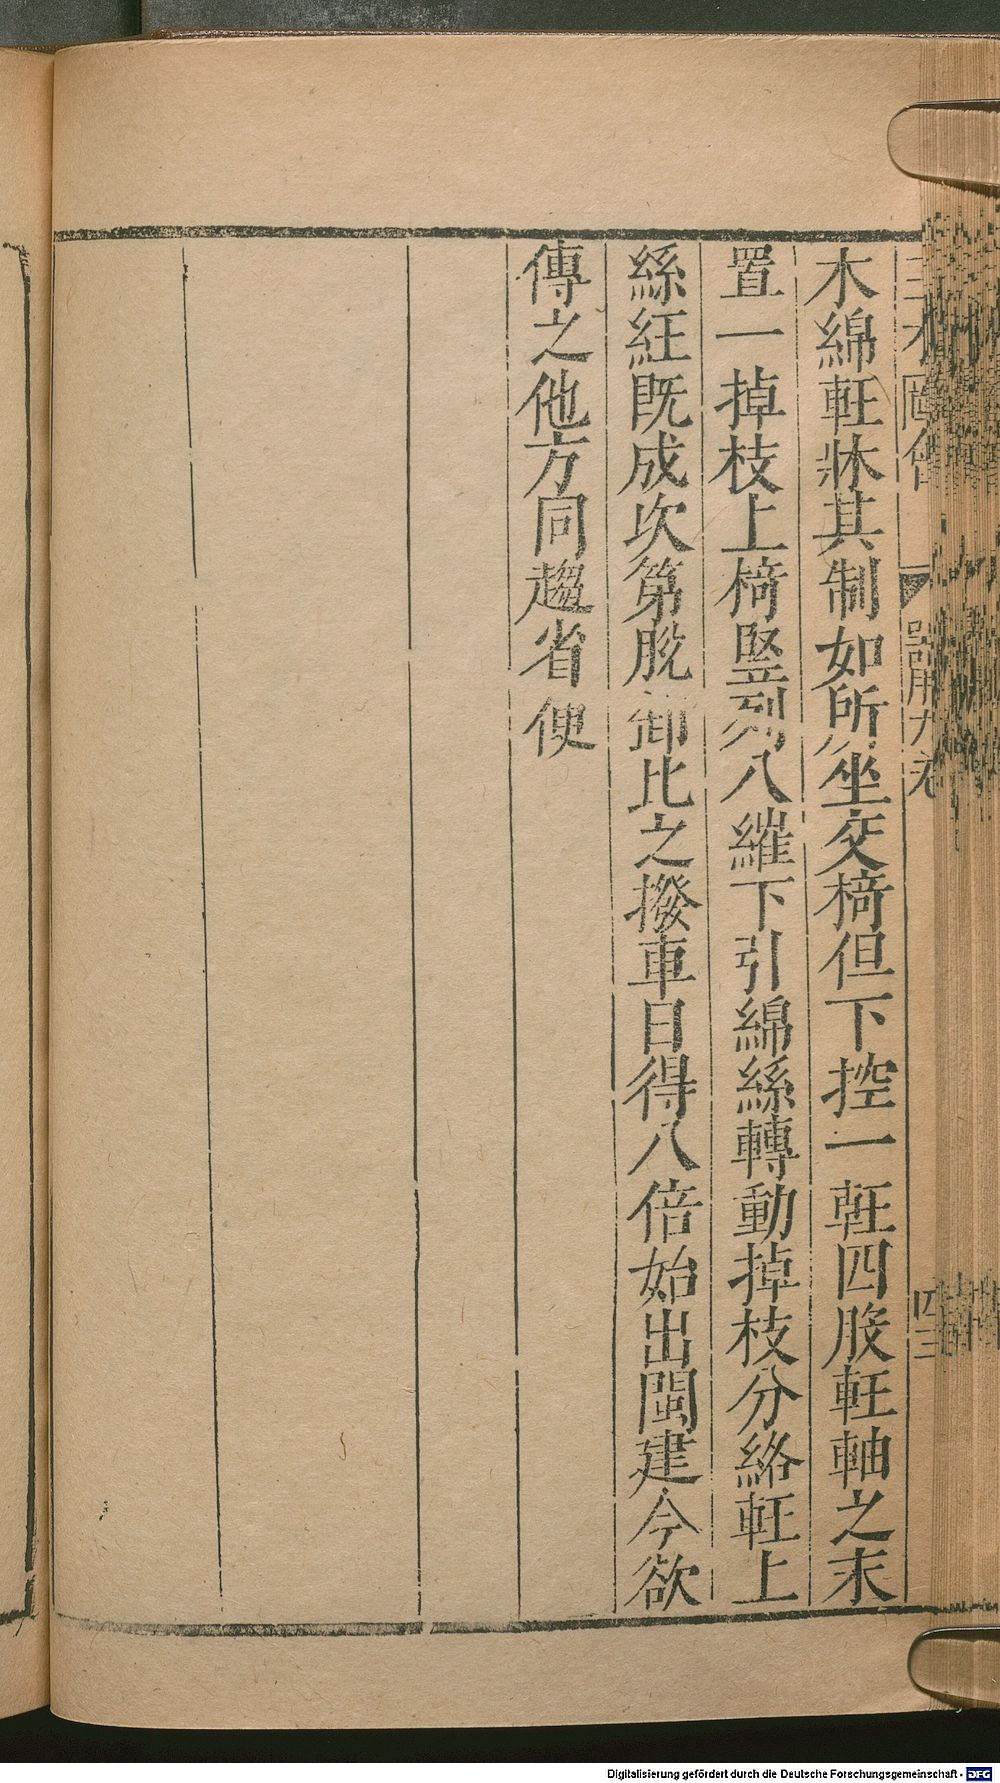 木綿軖牀其制如所坐交椅但下控一軖四股軖軸之末
置一掉枝上椅竪列八繀下引綿絲轉動掉枝分絡軖上
絲紝既成次第脫卸比之撥車日得八倍始出閩建今欲
傳之他方同趨省便
器用九卷
四三
Digitalisierung gefördert durch die Deutsche Forschungsgemeinschaft - DFG